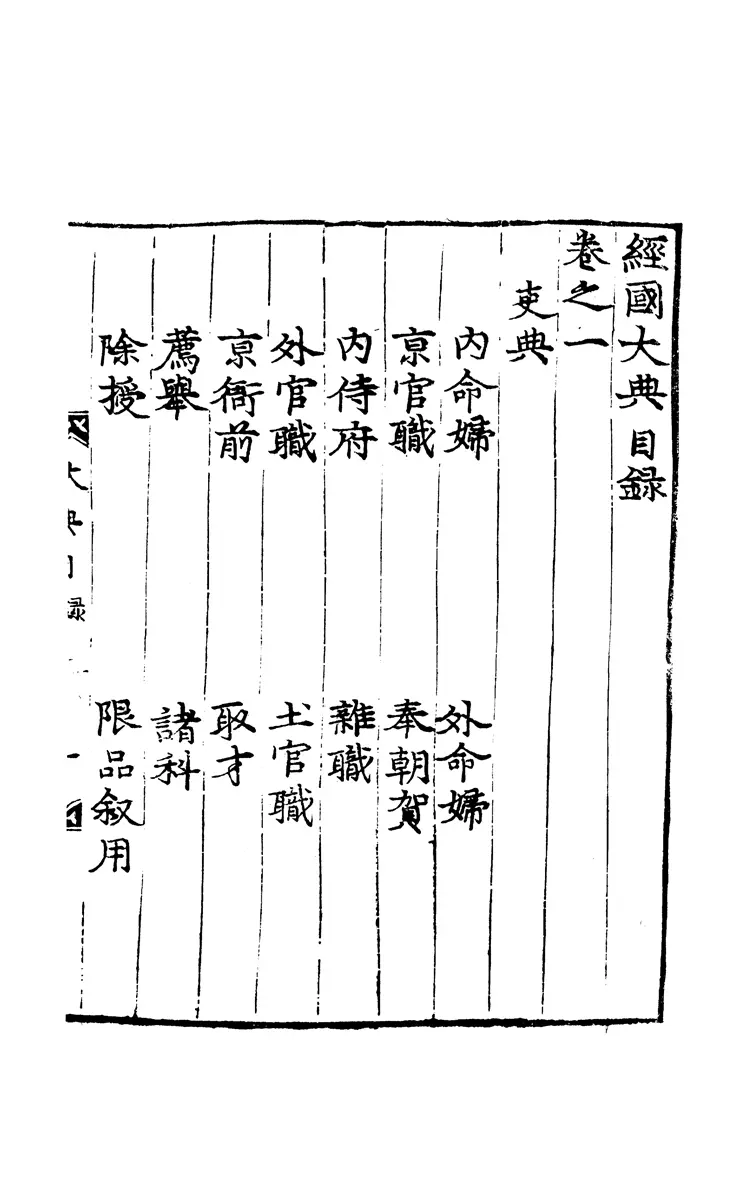 經國大典目録
卷之一
吏典
內命婦 外命婦
京官職 奉朝賀
內侍府 雜職
外官職 土官職
京衙前 取才
薦舉 諸科
除授 限品叙用
大典目録 一